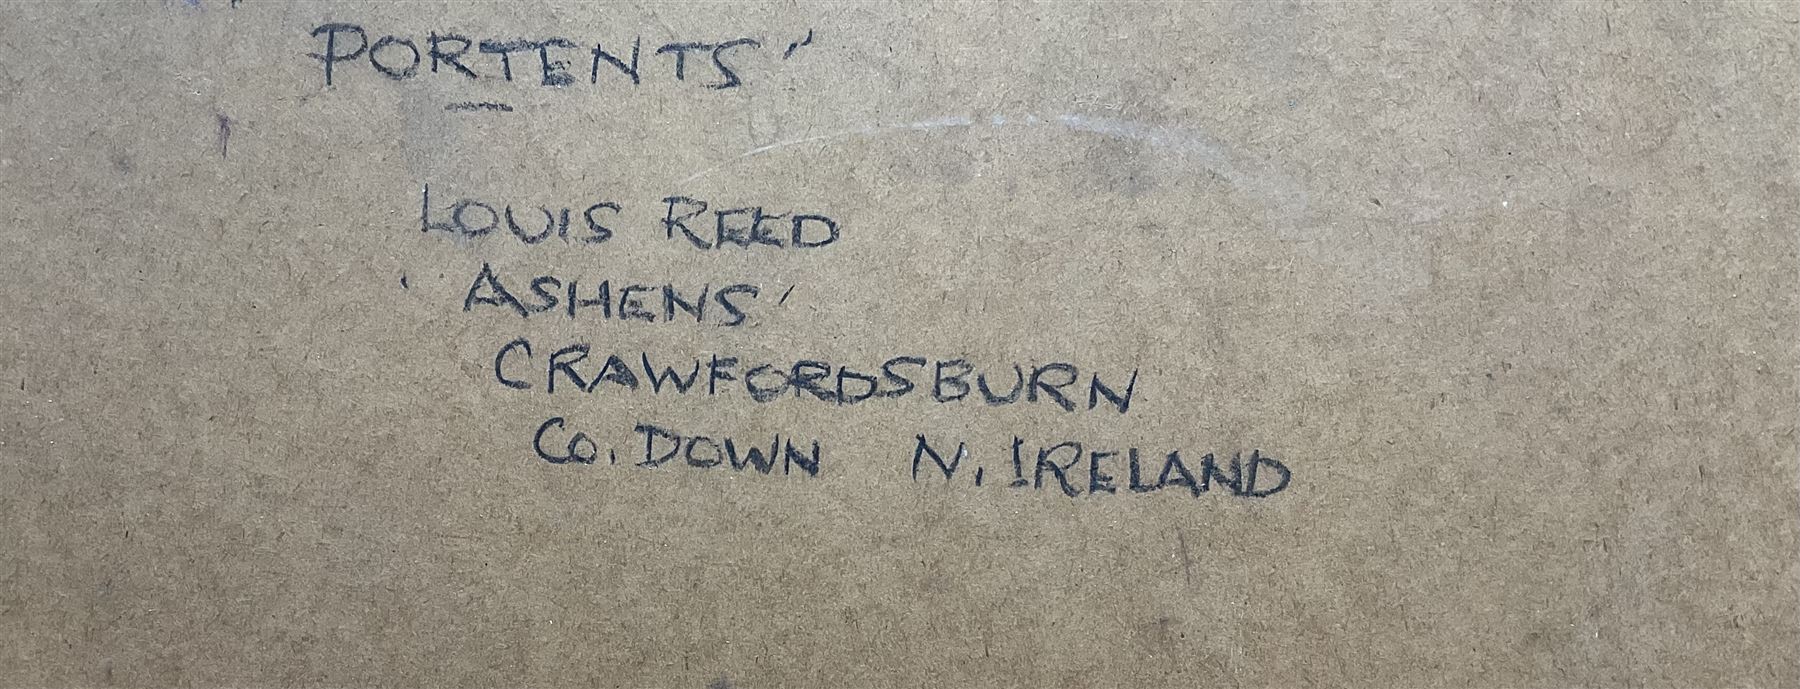 PORTENTS'
LOUIS REED
'ASHENS'
CRAWFORDSBURN
Co. DOWN N. IRELAND